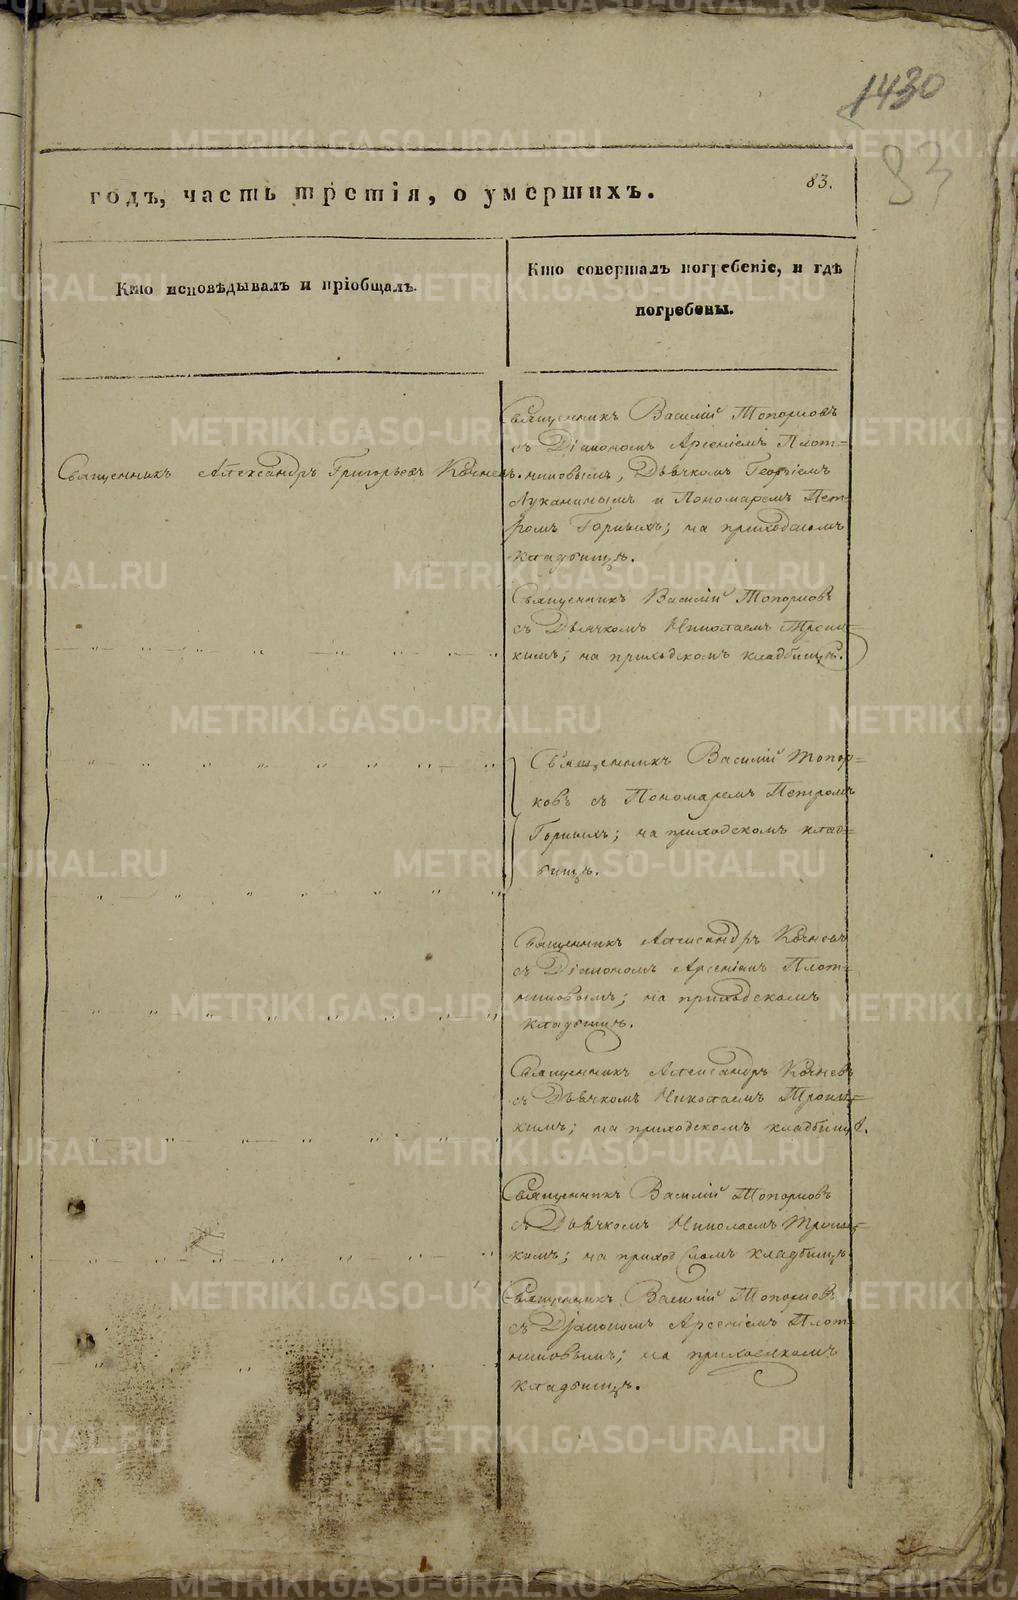 1430
83
83.
годъ, часть третія, о умершихъ.
Кто исповѣдывалъ и пріобщалъ.
Кто совершалъ погребеніе, и гдѣ
погребены.
Священникъ Александръ Григорьевъ Кочневъ.
Священникъ Василій Топорковъ
съ Діакономъ Арсеніемъ Плот=
никовымъ, Дьячкомъ Георгіемъ
Луканинымъ и Пономаремъ Пет=
ромъ Горныхъ; на приходскомъ
кладбищѣ.
Священникъ Василій Топорковъ
съ Дьячкомъ Николаемъ Троиц=
кимъ; на приходскомъ кладбищѣ.
Священникъ Василій Топор=
ковъ съ Пономаремъ Петромъ
Горныхъ; на приходскомъ клад=
бищѣ.
Священникъ Александръ Кочневъ
съ Діакономъ Арсеніемъ Плот=
никовымъ; на приходскомъ
кладбищѣ.
Священникъ Александръ Кочневъ
съ Дьячкомъ Николаемъ Троиц=
кимъ; на приходскомъ кладбищѣ.
Священникъ Василій Топорковъ
съ Дьячкомъ Николаемъ Троиц=
кимъ; на приходскомъ кладбищѣ
Священникъ Василій Топорковъ
съ Діакономъ Арсеніемъ Плот=
никовымъ; на приходскомъ
кладбищѣ.
METRIKI.GASO-URAL.RU